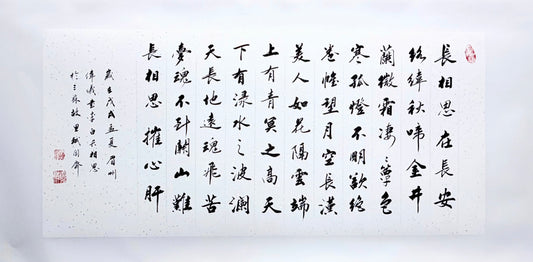 長相思在長安
絡緯秋啼金井
闌微霜凄〻簟色
寒孤燈不明欲絶
卷帷望月空長嘆
美人如花隔雲端
上有青冥之高天
下有渌水之波瀾
天長地遠魂飛苦
夢魂不到關山難
長相思摧心肝
歲在戊戌孟夏眉州
書李白長相思
於三蘇故里